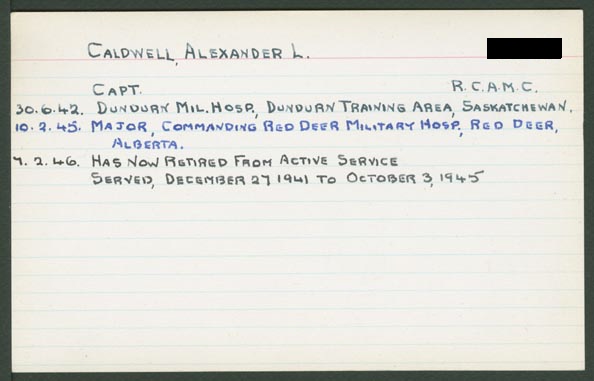 CALDWELL, ALEXANDER L.
CAPT. R.C.A.M.C.
30.6.42. DUNDURN MIL. HOSP., DUNDURN TRAINING AREA, SASKATCHEWAN.
10.2.45. MAJOR, COMMANDING RED DEER MILITARY HOSP., RED DEER,
ALBERTA.
7.2.46. HAS NOW RETIRED FROM ACTIVE SERVICE
SERVED, DECEMBER 27 1941 TO OCTOBER 3, 1945